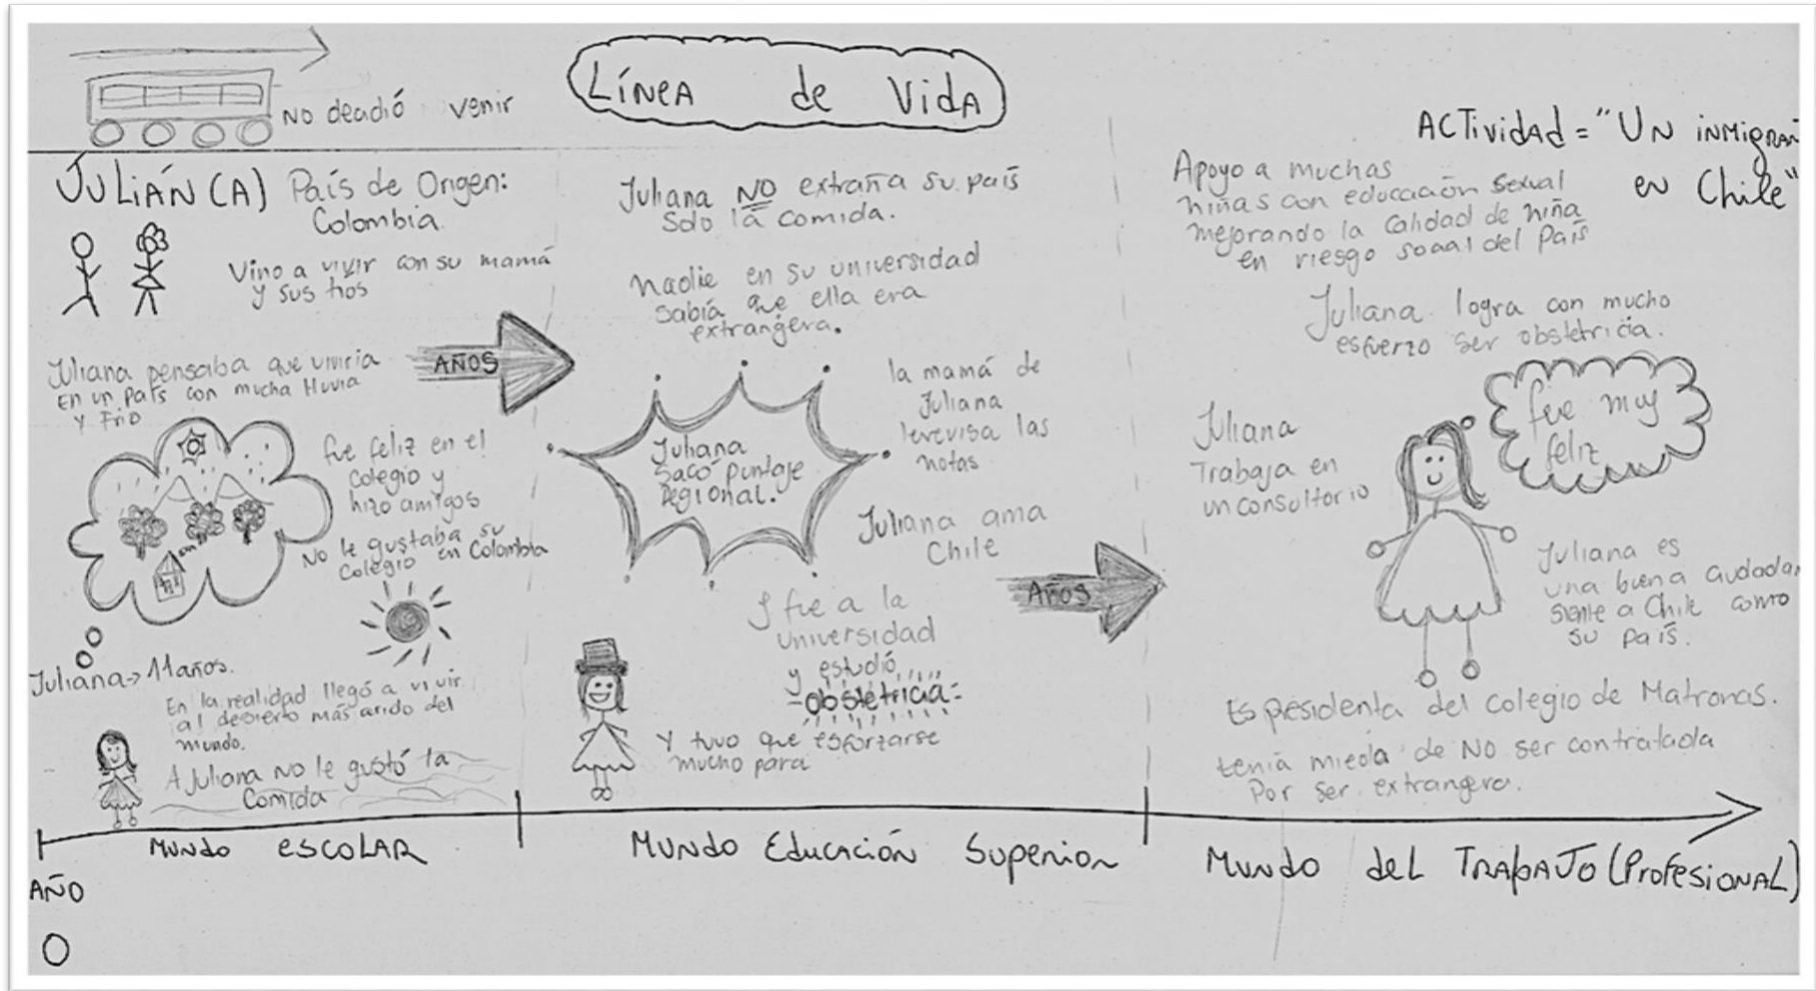 No deadió venir
LÍNEA de VidA
ACTividAd = "UN iNMigran
eN Chile"
JULIÁN (A) País de Origen:
Colombia.
Vino a vivir con su mamá
y sus tíos
Juliana pensaba que viviria
En un país con mucha lluvia
Y Frio
fue feliz en el
colegio y
hizo amigos
No le gustaba su
Colegio en Colombia
Juliana → 11 años.
En la realidad llegó a vivir
al desierto más arido del
mundo.
A Juliana NO le gustó la
Comida
AÑOS
Juliana NO extraña su país
Solo la comida.
Nadie en su universidad
Sabía que ella era
extrangera.
Juliana
Sacó puntaje
Regional.
la mamá de
Juliana
le revisa las
notas
Juliana ama
Chile
Y fue a la
universidad
y estudió
-obstetricia-
Y tuvo que esforzarse
mucho para
AÑOS
Apoyo a muchas
niñas con educación sexual
mejorando la calidad de niña
en riesgo social del País
Juliana logra con mucho
esfuerzo ser obstetricia.
fue muy
feliz
Juliana
Trabaja en
un consultorio
Juliana es
una buena ciudadan
siente a Chile como
su país.
Es presidenta del colegio de Matronas.
tenia miedo de NO ser contratada
Por ser extrangera.
MUNdo eSCOLAR
MUNdo Educación Superior
MUNdo deL TRAbAJO (ProfesioNAL)
AÑO
0